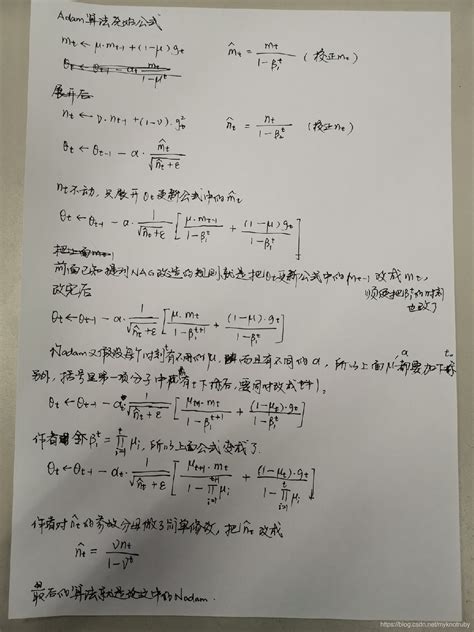 Adam算法原始公式
m_t ← μ·m_{t-1} + (1-μ)g_t    m̂_t = m_t / (1-β_1^t) (校正m_t)
θ_t ← θ_{t-1} - α· m_t / (1-μ^t)
展开后
n_t ← ν·n_{t-1} + (1-ν)·g_t^2    n̂_t = n_t / (1-β_2^t) (校正n_t)
θ_t ← θ_{t-1} - α· m̂_t / (√n̂_t+ε)
n_t不动,只展开θ_t更新公式中的m̂_t
θ_t ← θ_{t-1} - α· 1/(√n̂_t+ε) [ μ·m_{t-1} / (1-β_1^t) + (1-μ)g_t / (1-β_1^t) ]
把上面m_{t-1}
前面已知提到NAG改造的规则就是把θ_t更新公式中的m_{t-1}改成m_t,
顺便把β_1^t的时刻
也改了
改完后
θ_t ← θ_{t-1} - α· 1/(√n̂_t+ε) [ μ·m_t / (1-β_1^{t+1}) + (1-μ)·g_t / (1-β_1^t) ]
adam又假设每个时刻有不同的μ,而且有不同的α,所以上面μ,α都要加下标t。
另外,括号里第一项分子中μ有t下标后,要同时改成t+1。
θ_t ← θ_{t-1} - α_t· 1/(√n̂_t+ε) [ μ_{t+1}·m_t / (1-β_1^{t+1}) + (1-μ_t)·g_t / (1-β_1^t) ]
作者用β_1^t = ∏_{i=1}^t μ_i,所以上面公式变成了
θ_t ← θ_{t-1} - α_t· 1/(√n̂_t+ε) [ μ_{t+1}·m_t / (1-∏_{i=1}^{t+1} μ_i) + (1-μ_t)·g_t / (1-∏_{i=1}^t μ_i) ]
作者对n̂_t的分母做了简单修改,把n̂_t改成
n̂_t = νn_t / (1-ν^t)
最后的算法就是论文中的Nadam.
https://blog.csdn.net/myknotruby